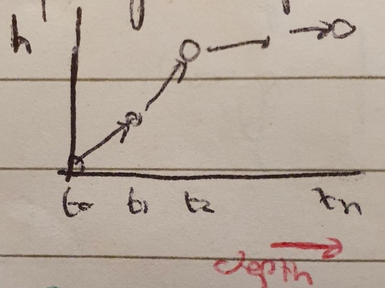 h
t₀ t₁ t₂ tₙ
depth